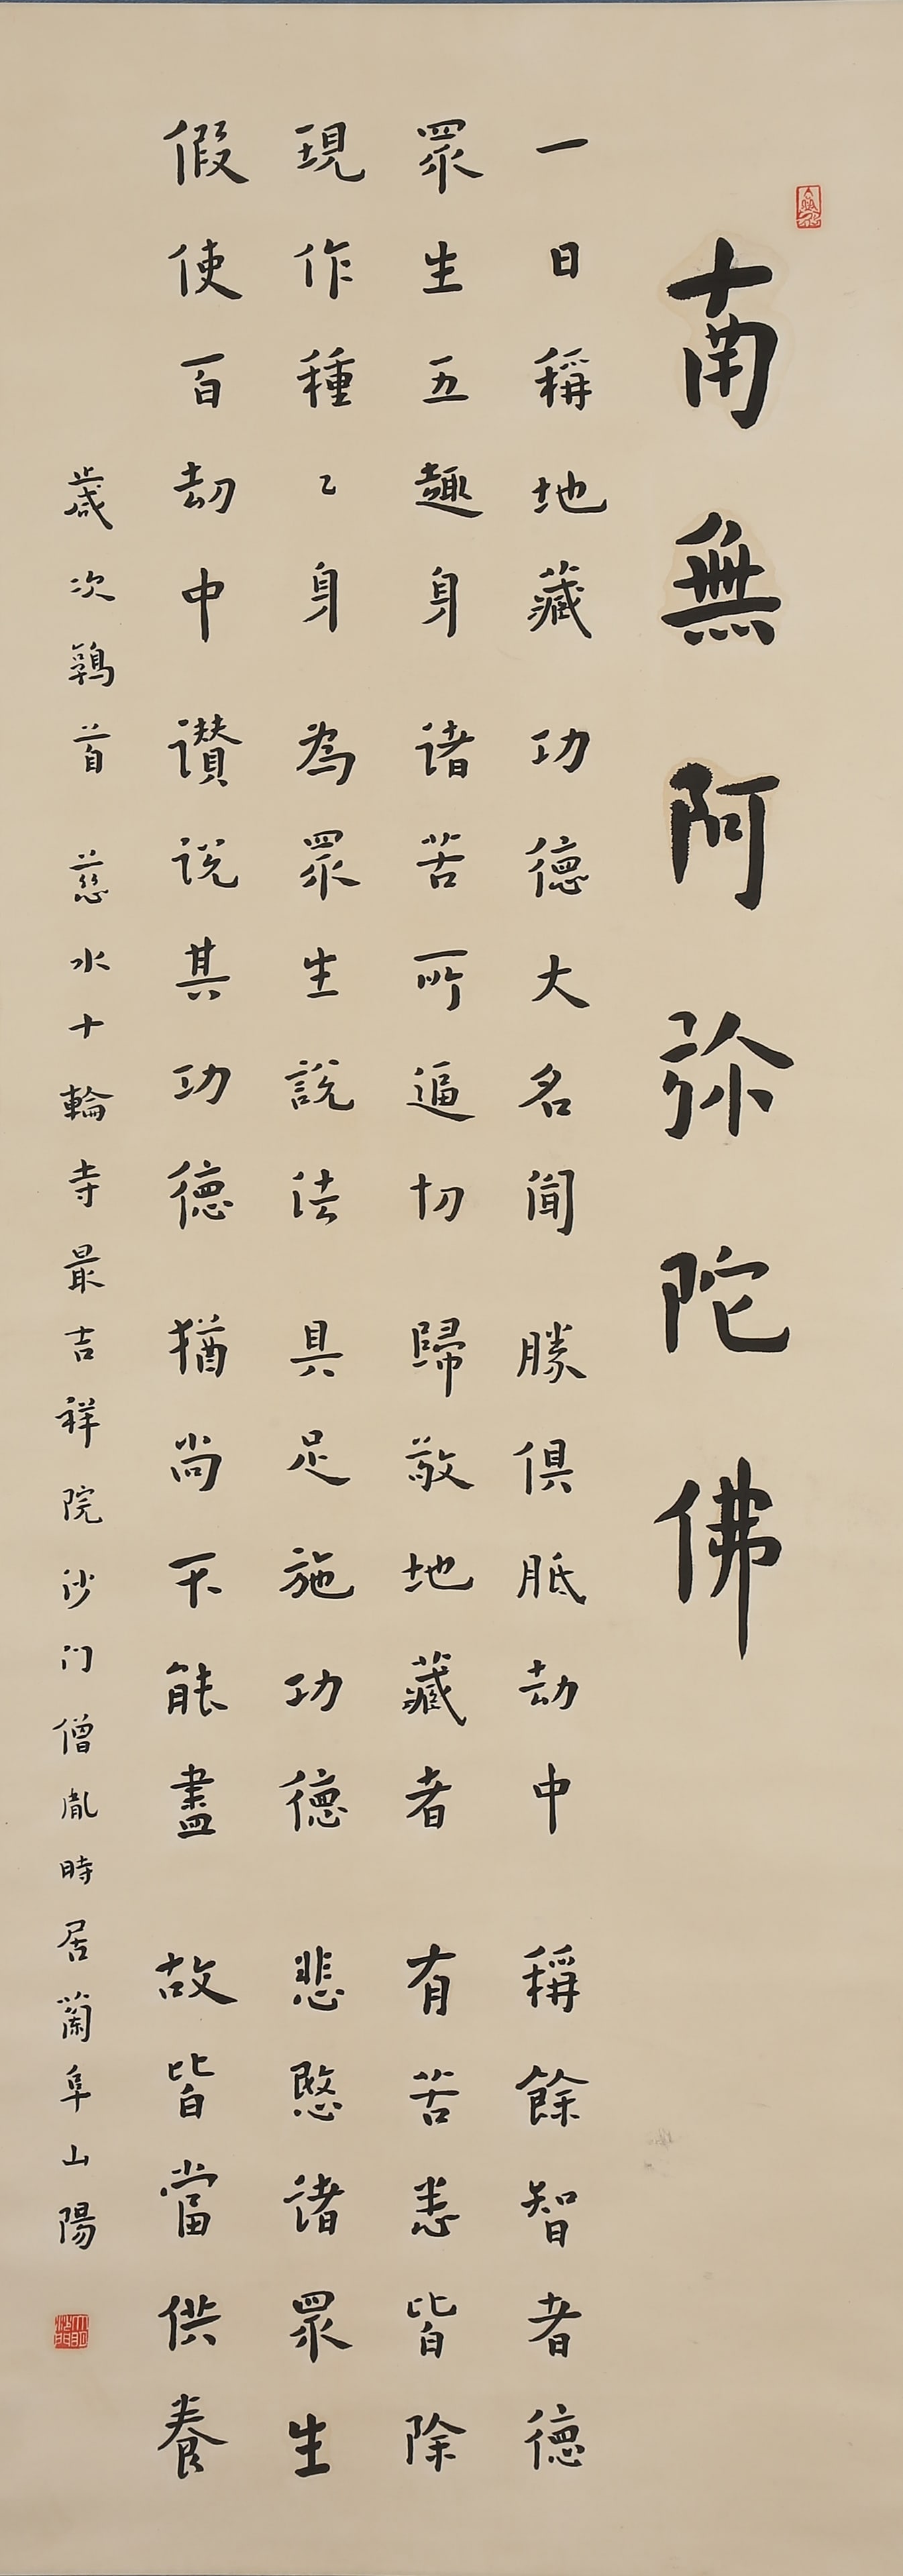 南無阿弥陀佛
一日稱地藏 功德大名聞 勝俱胝劫中 稱餘智者德
眾生五趣身 諸苦所逼切 歸敬地藏者 有苦悉皆除
現作種〻身 為眾生說法 具足施功德 悲愍諸眾生
假使百劫中 讚說其功德 猶尚不能盡 故皆當供養
歲次鶉首 慈水十輪寺最吉祥院沙门僧胤時居蘭阜山陽